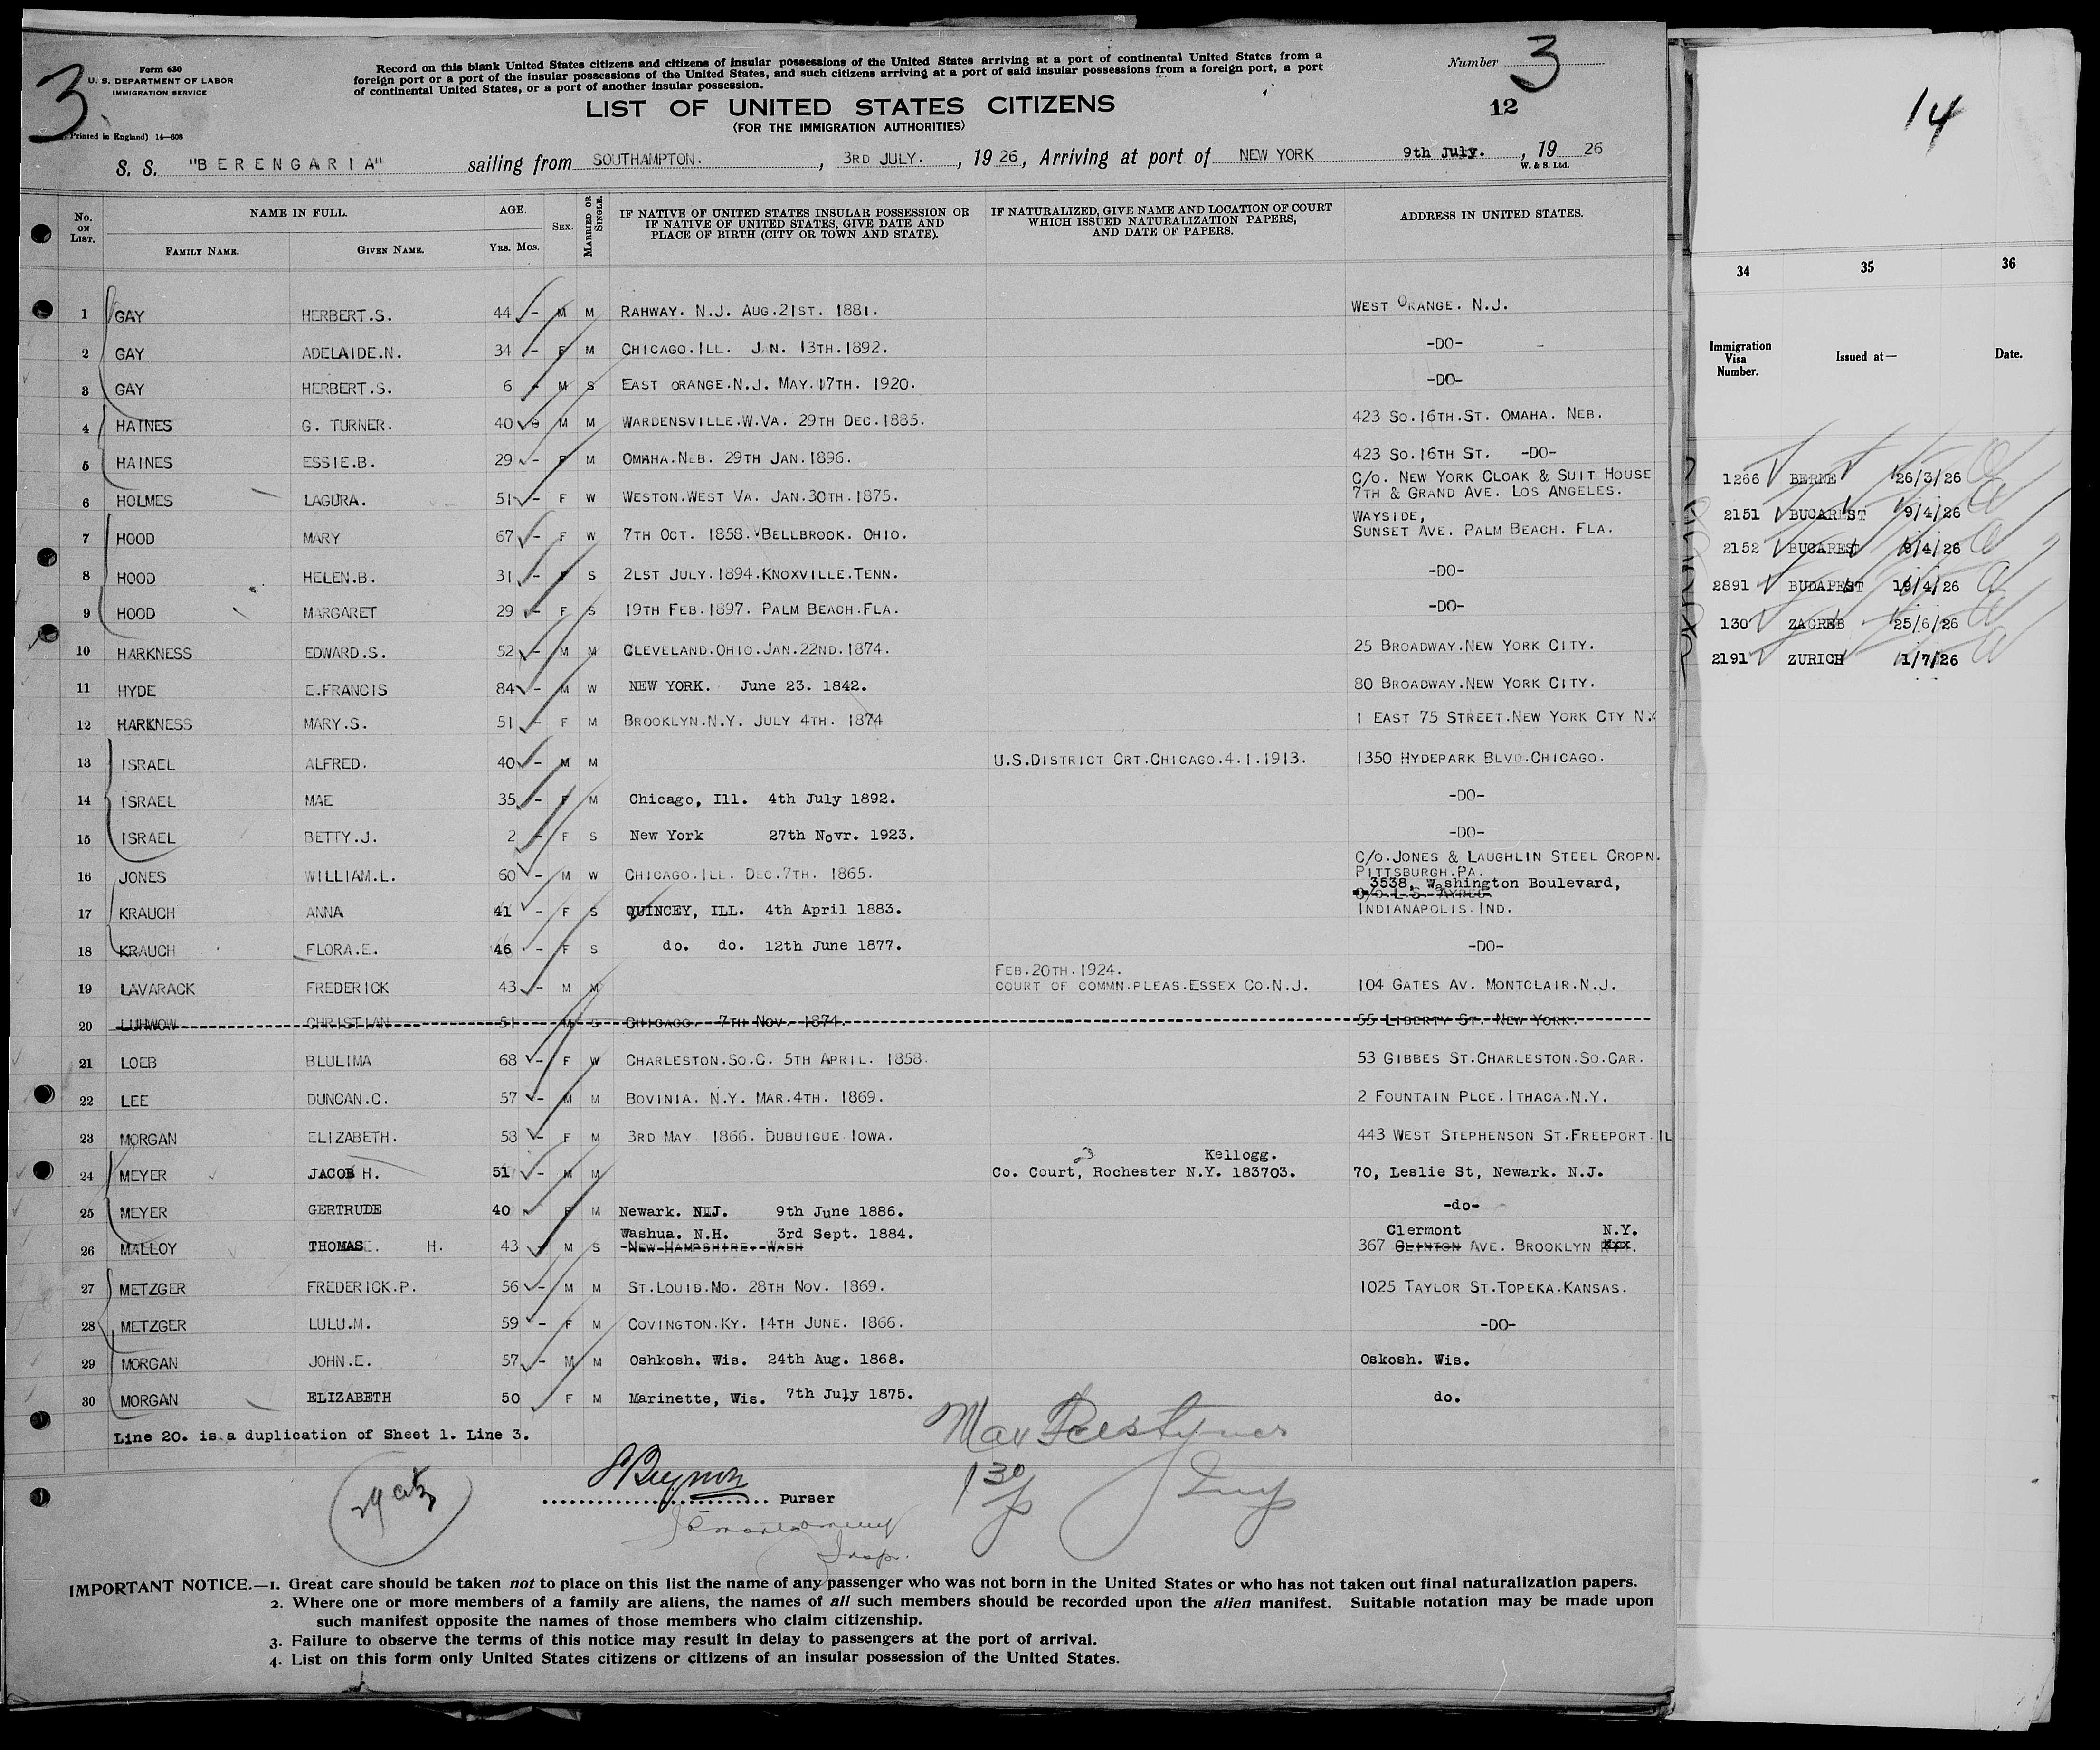 3
Form 630
U. S. DEPARTMENT OF LABOR
IMMIGRATION SERVICE
Printed in England) 14—608
Record on this blank United States citizens and citizens of insular possessions of the United States arriving at a port of continental United States from a
foreign port or a port of the insular possessions of the United States, and such citizens arriving at a port of said insular possessions from a foreign port, a port
of continental United States, or a port of another insular possession.
Number 3
LIST OF UNITED STATES CITIZENS
12
(FOR THE IMMIGRATION AUTHORITIES)
S. S. "BERENGARIA" sailing from SOUTHAMPTON. , 3RD JULY. , 19 26, Arriving at port of NEW YORK 9th July. , 19 26
W. & S. Ltd.
No. ON LIST. NAME IN FULL. AGE. SEX. MARRIED OR SINGLE. IF NATIVE OF UNITED STATES INSULAR POSSESSION OR IF NATIVE OF UNITED STATES, GIVE DATE AND PLACE OF BIRTH (CITY OR TOWN AND STATE). IF NATURALIZED, GIVE NAME AND LOCATION OF COURT WHICH ISSUED NATURALIZATION PAPERS, AND DATE OF PAPERS. ADDRESS IN UNITED STATES.
FAMILY NAME. GIVEN NAME. YRS. MOS.
1 GAY HERBERT.S. 44 - M M RAHWAY. N.J. AUG.21ST. 1881. WEST ORANGE. N.J.
2 GAY ADELAIDE.N. 34 - F M CHICAGO.ILL. JAN. 13TH.1892. -DO-
3 GAY HERBERT.S. 6 - M S EAST ORANGE.N.J. MAY.17TH. 1920. -DO-
4 HAINES G. TURNER. 40 M M WARDENSVILLE.W.VA. 29TH DEC.1885. 423 SO.16TH.ST. OMAHA. NEB.
5 HAINES ESSIE.B. 29 - F M OMAHA.NEB. 29TH JAN.1896. 423 SO.16TH ST. -DO-
6 HOLMES LAGURA. 51 - F W WESTON.WEST VA. JAN.30TH.1875. C/O. NEW YORK CLOAK & SUIT HOUSE
7TH & GRAND AVE. LOS ANGELES.
7 HOOD MARY 67 - F W 7TH OCT. 1858. BELLBROOK. OHIO. WAYSIDE,
SUNSET AVE. PALM BEACH. FLA.
8 HOOD HELEN.B. 31 - F S 2LST JULY.1894.KNOXVILLE.TENN. -DO-
9 HOOD MARGARET 29 - F S 19TH FEB.1897. PALM BEACH.FLA. -DO-
10 HARKNESS EDWARD.S. 52 - M M CLEVELAND.OHIO.JAN.22ND.1874. 25 BROADWAY.NEW YORK CITY.
11 HYDE E.FRANCIS 84 - M W NEW YORK. June 23. 1842. 80 BROADWAY.NEW YORK CITY.
12 HARKNESS MARY.S. 51 - F M BROOKLYN.N.Y. JULY 4TH. 1874 1 EAST 75 STREET.NEW YORK CTY N.Y
13 ISRAEL ALFRED. 40 - M M U.S.DISTRICT CRT.CHICAGO.4.1.1913. 1350 HYDEPARK BLVD.CHICAGO.
14 ISRAEL MAE 35 - F M Chicago, Ill. 4th July 1892. -DO-
15 ISRAEL BETTY.J. 2 - F S New York 27th Novr. 1923. -DO-
16 JONES WILLIAM.L. 60 - M W CHICAGO.ILL. DEC.7TH. 1865. C/O.JONES & LAUGHLIN STEEL CROPN.
PITTSBURGH.PA.
17 KRAUCH ANNA 41 - F S QUINCEY, ILL. 4th April 1883. 3538, Washington Boulevard,
INDIANAPOLIS.IND.
18 KRAUCH FLORA.E. 46 - F S do. do. 12th June 1877. -DO-
19 LAVARACK FREDERICK 43 - M M FEB.20TH.1924.
COURT OF COMMN.PLEAS.ESSEX CO.N.J. 104 GATES AV. MONTCLAIR.N.J.
20 LUHWOW CHRISTIAN 51 M S CHICAGO. 7TH NOV. 1874. 55 LIBERTY ST. NEW YORK.
21 LOEB BLULIMA 68 - F W CHARLESTON.SO.C. 5TH APRIL. 1858. 53 GIBBES ST.CHARLESTON.SO.CAR.
22 LEE DUNCAN.C. 57 - M M BOVINIA. N.Y. MAR.4TH. 1869. 2 FOUNTAIN PLCE.ITHACA.N.Y.
23 MORGAN ELIZABETH. 53 - F M 3RD MAY 1866. DUBUIGUE IOWA. 443 WEST STEPHENSON ST.FREEPORT.IL
24 MEYER JACOB H. 51 - M M Kellogg.
Co. Court, Rochester N.Y. 183703. 70, Leslie St, Newark. N.J.
25 MEYER GERTRUDE 40 F M Newark. N.J. 9th June 1886. -do-
26 MALLOY THOMAS H. 43 - M S Washua. N.H. 3rd Sept. 1884.
NEW HAMPSHIRE. WASH
Clermont N.Y.
367 CLINTON AVE. BROOKLYN
27 METZGER FREDERICK.P. 56 - M M ST.LOUIS.MO. 28TH NOV. 1869. 1025 TAYLOR ST.TOPEKA.KANSAS.
28 METZGER LULU.M. 59 - F M COVINGTON.KY. 14TH JUNE. 1866. -DO-
29 MORGAN JOHN.E. 57 - M M Oshkosh. Wis. 24th Aug. 1868. Oskosh. Wis.
30 MORGAN ELIZABETH 50 F M Marinette, Wis. 7th July 1875. do.
Line 20. is a duplication of Sheet 1. Line 3.
Purser
Insp.
IMPORTANT NOTICE.—1. Great care should be taken not to place on this list the name of any passenger who was not born in the United States or who has not taken out final naturalization papers.
2. Where one or more members of a family are aliens, the names of all such members should be recorded upon the alien manifest. Suitable notation may be made upon
such manifest opposite the names of those members who claim citizenship.
3. Failure to observe the terms of this notice may result in delay to passengers at the port of arrival.
4. List on this form only United States citizens or citizens of an insular possession of the United States.
14
34 35 36
Immigration Visa Number. Issued at— Date.
1266 BERNE 26/3/26
2151 BUCAREST 9/4/26
2152 BUCAREST 9/4/26
2891 BUDAPEST 19/4/26
130 ZAGREB 25/6/26
2191 ZURICH 1/7/26